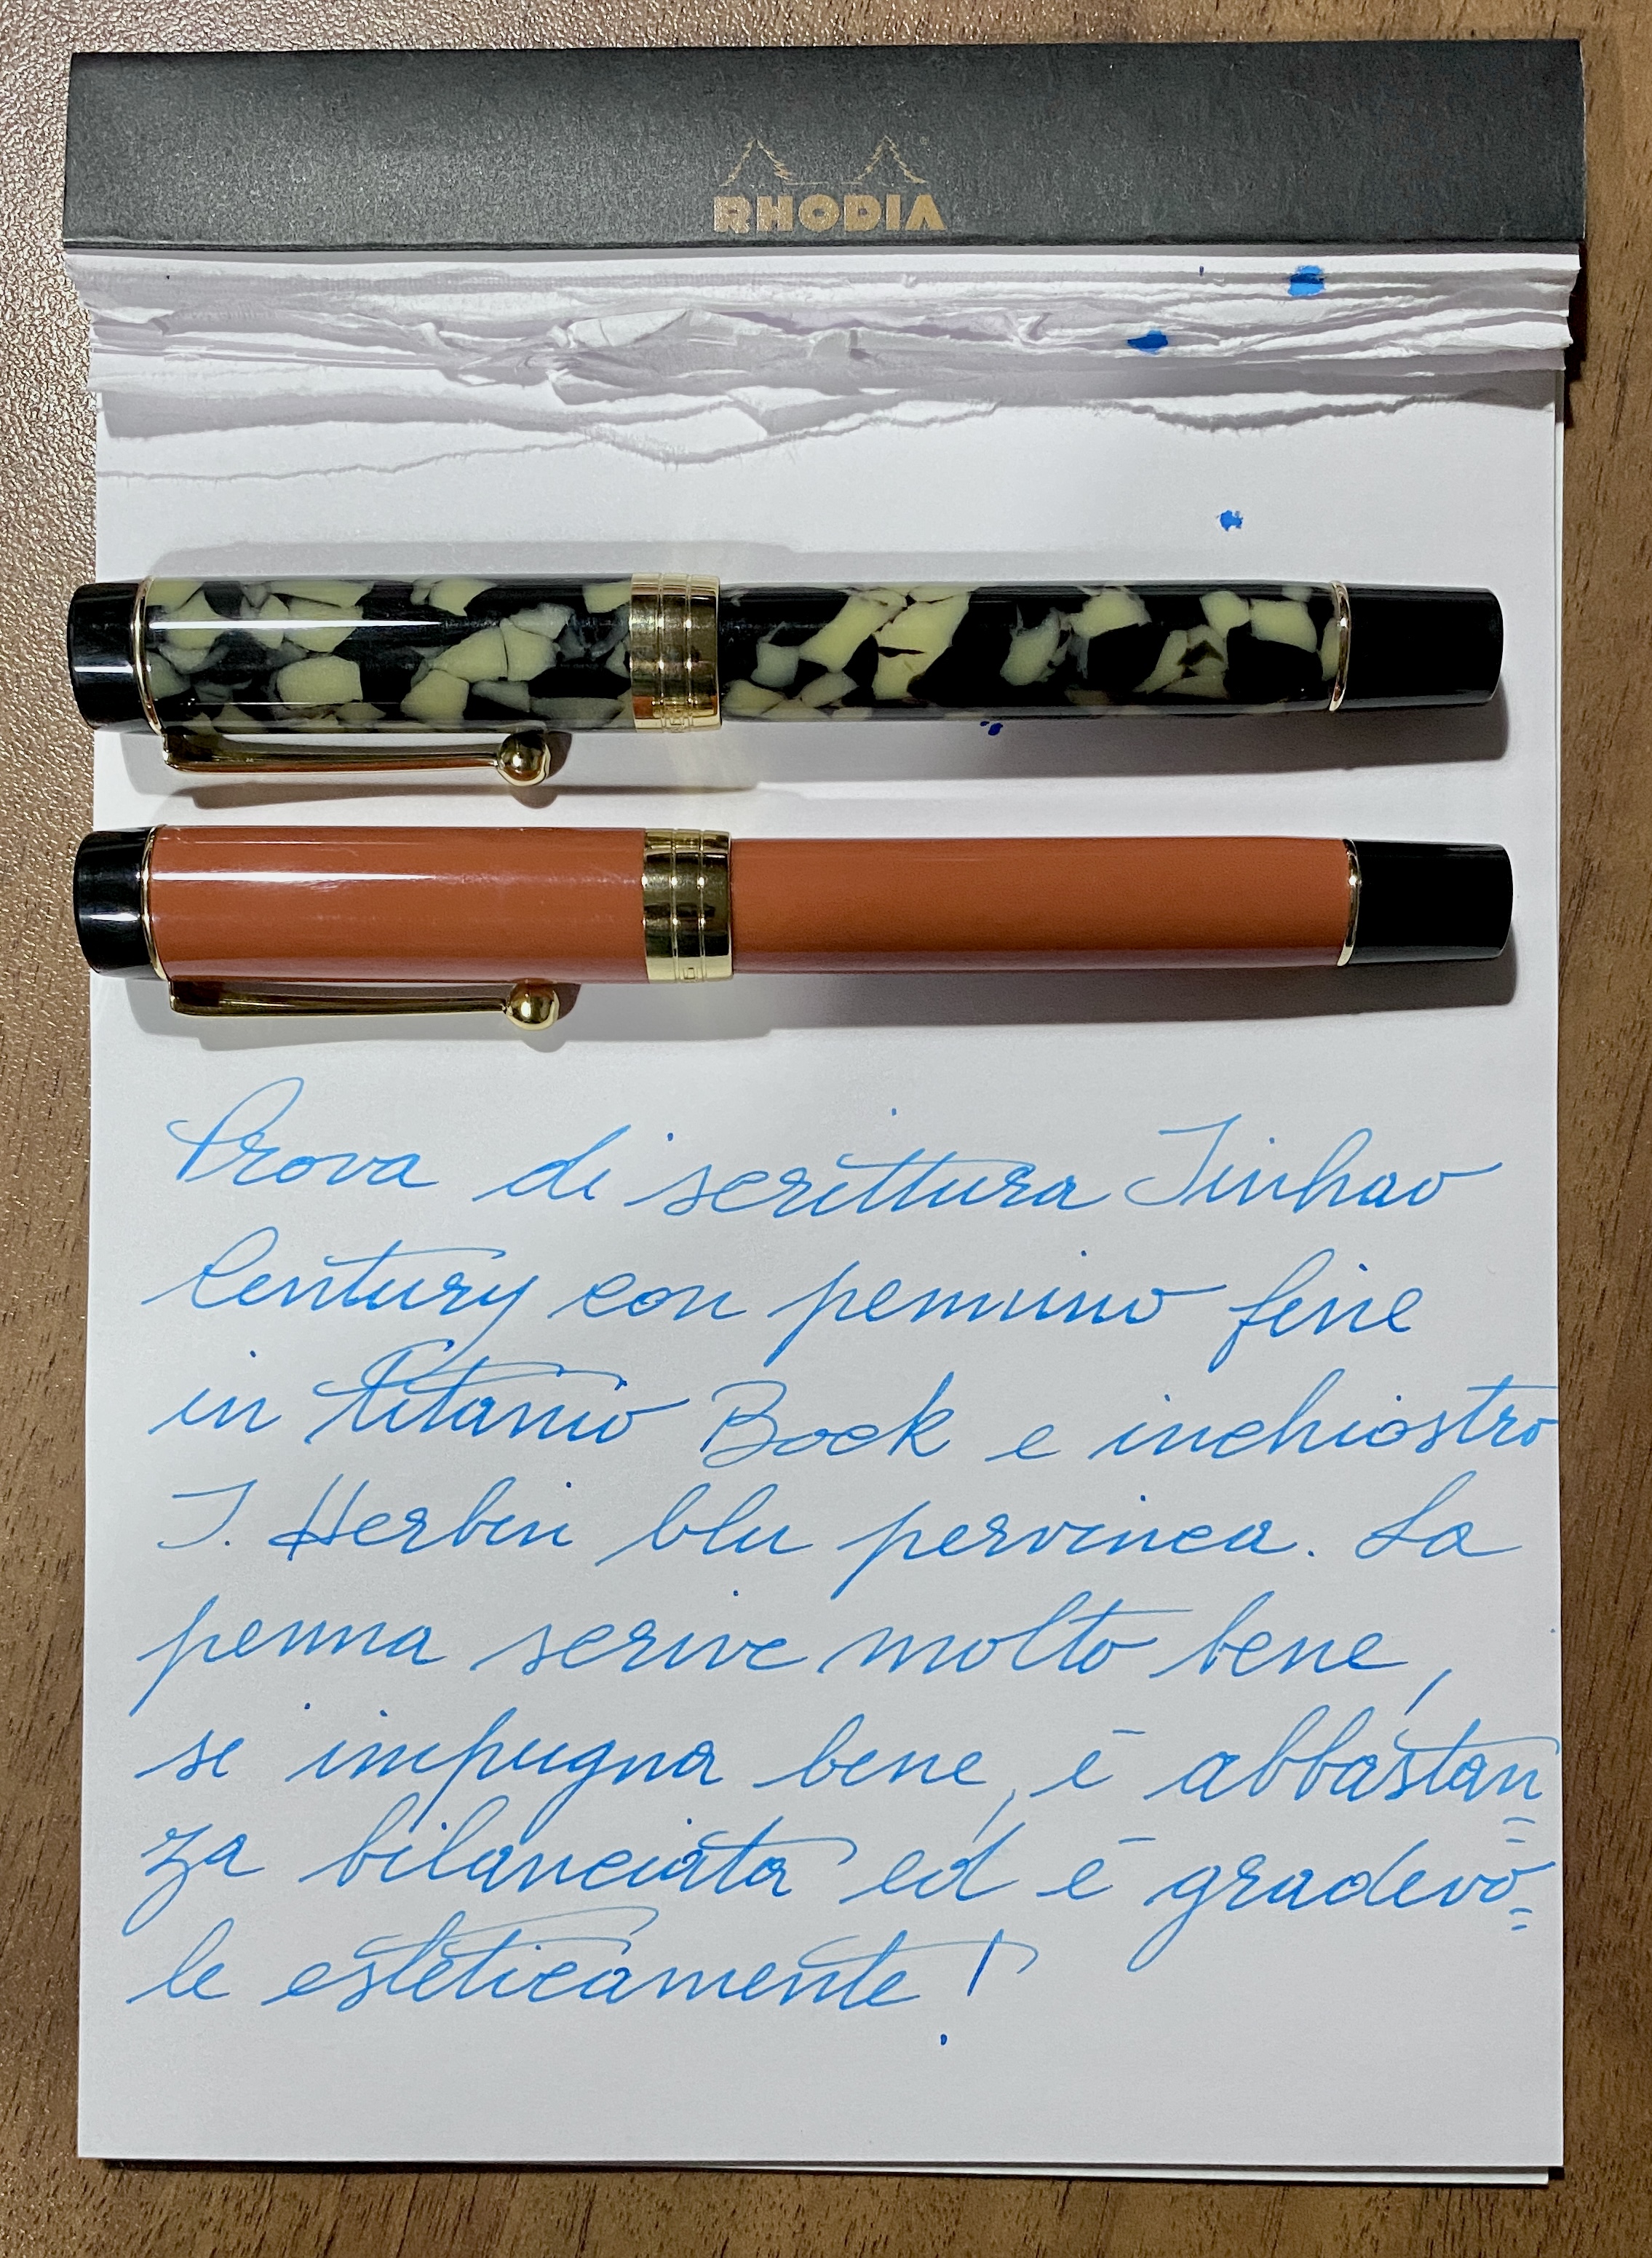 RHODIA
Prova di scrittura Jinhao
Century con pennino fine
in titanio Bock e inchiostro
J. Herbin blu pervinca. La
penna scrive molto bene,
se impugna bene, è abbastan=
za bilanciata ed è gradevo=
le esteticamente!